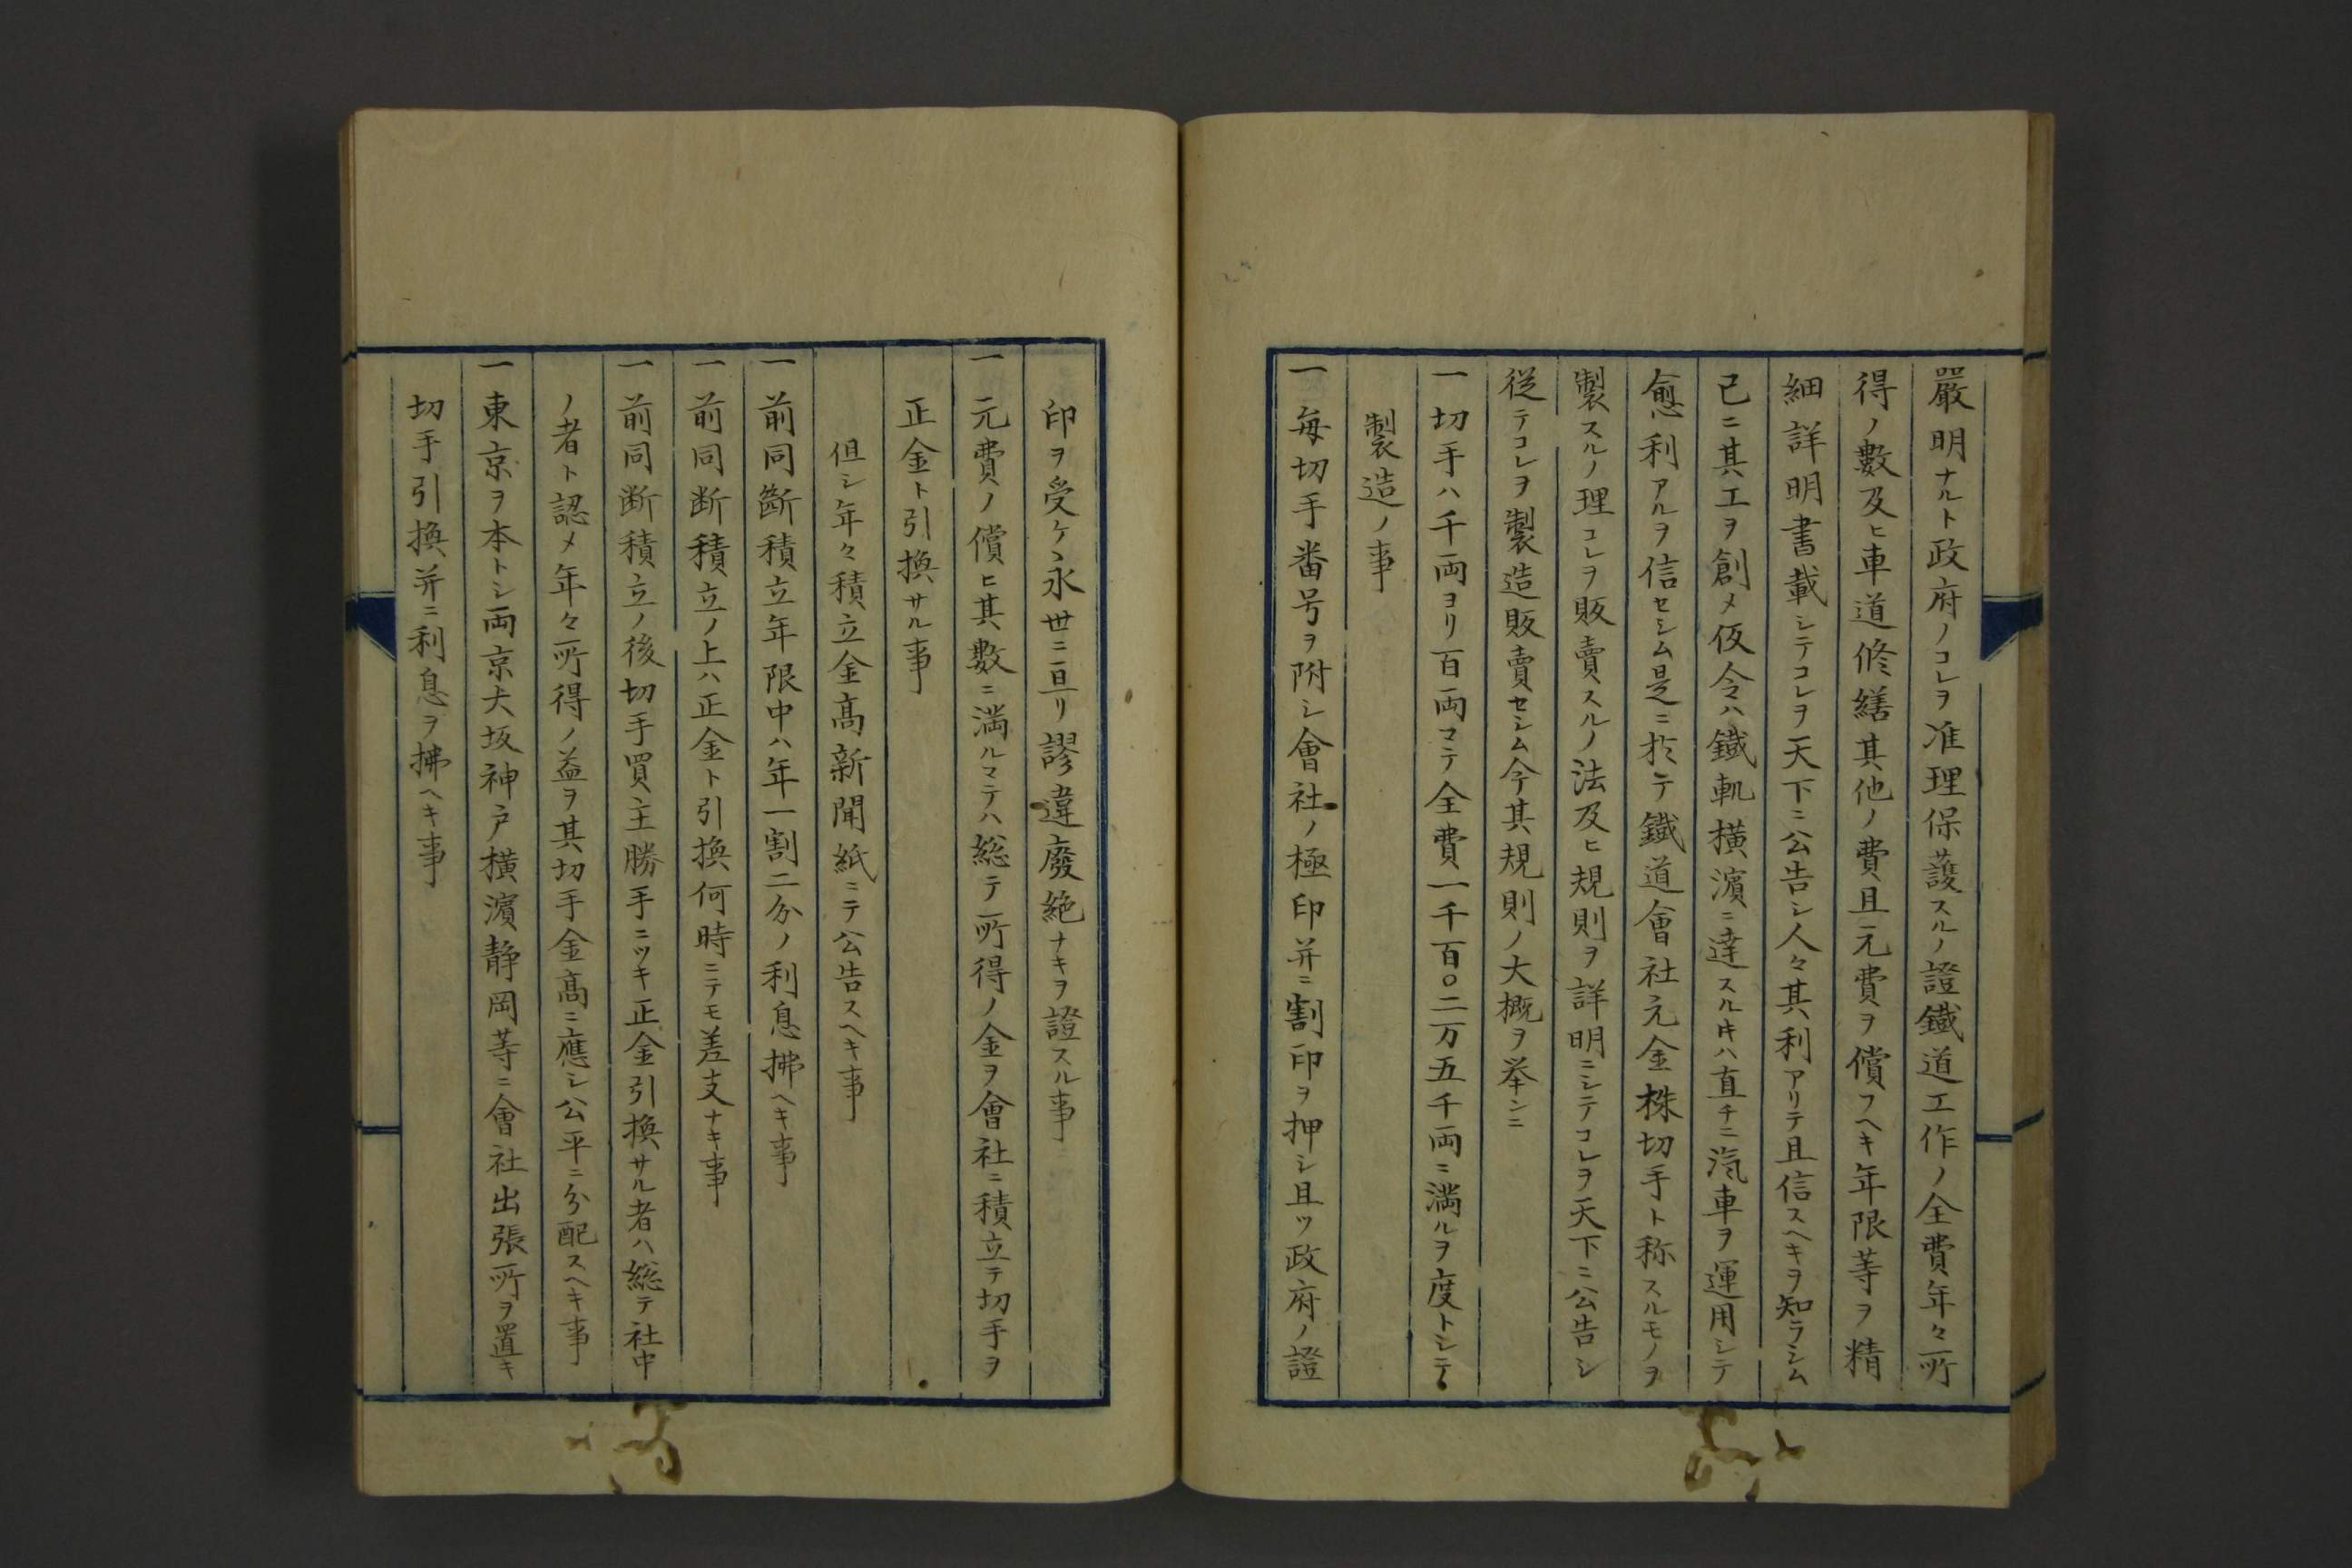 嚴明ナルト政府ノコレヲ准理保護スルノ證鐵道工作ノ全費年々所
得ノ數及ヒ車道修繕其他ノ費且元費ヲ償フヘキ年限等ヲ精
細詳明書載シテコレヲ天下ニ公告シ人々其利アリテ且信スヘキヲ知ラシム
已ニ其工ヲ創メ仮令ハ鐵軌横濱ニ達スル𪜈ハ直チニ汽車ヲ運用シテ
愈利アルヲ信セシム是ニ於テ鐵道會社元金株切手ト称スルモノヲ
製スルノ理コレヲ販賣スルノ法及ヒ規則ヲ詳明ニシテコレヲ天下ニ公告シ
従テコレヲ製造販賣セシム今其規則ノ大概ヲ挙ンニ
一切手ハ千両ヨリ百両マテ全費一千百〇二万五千両ニ満ルヲ度トシテ
製造ノ事
一毎切手番号ヲ附シ會社ノ極印并ニ割印ヲ押シ且ツ政府ノ證
印ヲ受ケヽ永世ニ亘リ謬違廢絶ナキヲ證スル事
一元費ノ償ヒ其數ニ満ルマテハ総テ所得ノ金ヲ會社ニ積立テ切手ヲ
正金ト引換サル事
但シ年々積立金高新聞紙ニテ公告スヘキ事
一前同断積立年限中ハ年一割二分ノ利息拂ヘキ事
一前同断積立ノ上ハ正金ト引換何時ニテモ差支ナキ事
一前同断積立ノ後切手買主勝手ニツキ正金引換サル者ハ総テ社中
ノ者ト認メ年々所得ノ益ヲ其切手金高ニ應シ公平ニ分配スヘキ事
一東京ヲ本トシ両京大坂神戸横濱静岡等ニ會社出張所ヲ置キ
切手引換并ニ利息ヲ拂ヘキ事